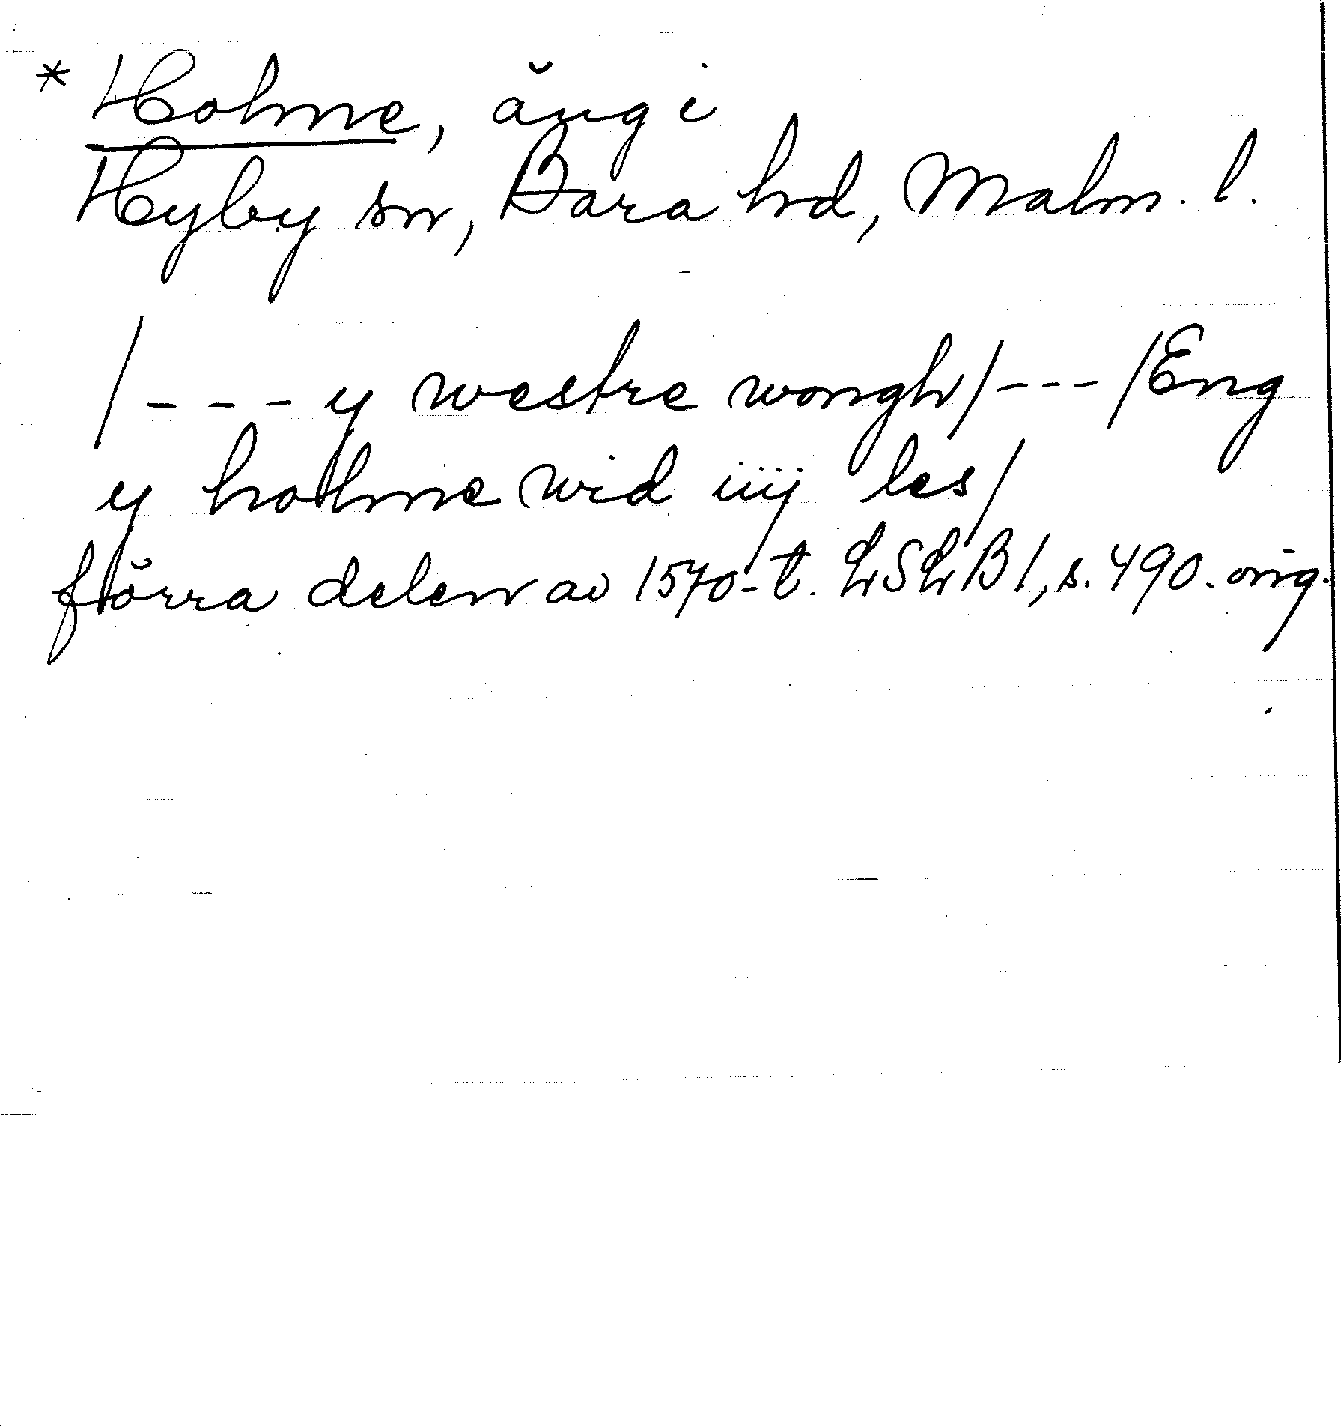 * Holme, äng i
Hyby sn, Bara hd, Malm. l.
/- - - y westre wongh/- - - /Eng
y holme wid iiij les/
förra delen av 1570-t. LSLB I, s. 490. orig.